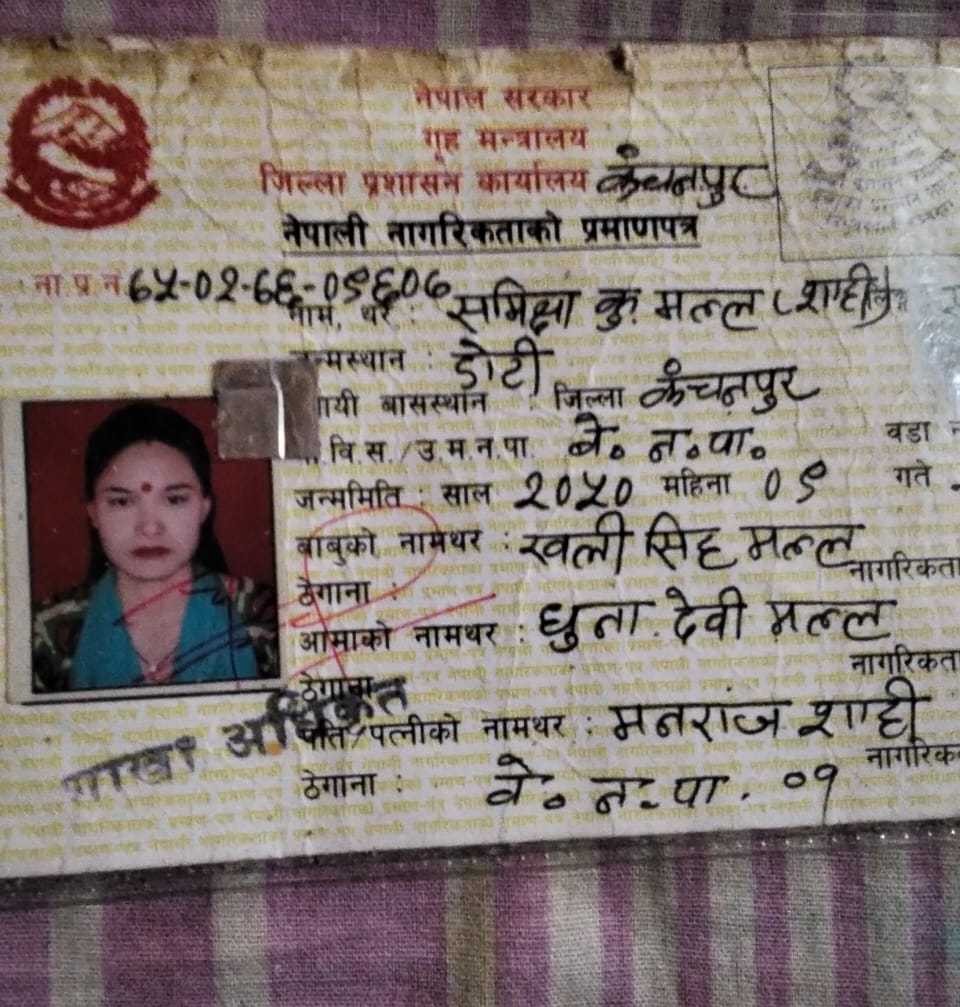 नेपाल सरकार
गृह मन्त्रालय
जिल्ला प्रशासन कार्यालय कंचनपुर
नेपाली नागरिकताको प्रमाणपत्र
ना.प्र.न.
नाम, थर : समिक्षा कु. मल्ल (शाही)
न्मस्थान : डोटी
ायी बासस्थान : जिल्ला कंचनपुर
.वि.स./उ.म.न.पा. वे. न.पा. वडा
जन्ममिति : साल २०५० महिना ०९ गते
बाबुको नामथर : खली सिह मल्ल
नागरिकता
ठेगाना :
आमाको नामथर : धुना देवी मल्ल
नागरिकता
ठेगाना
पति/पत्नीको नामथर : मनराज शाही
नागरिक
ठेगाना : वे. न.पा. ०१
शाखा अधिकृत